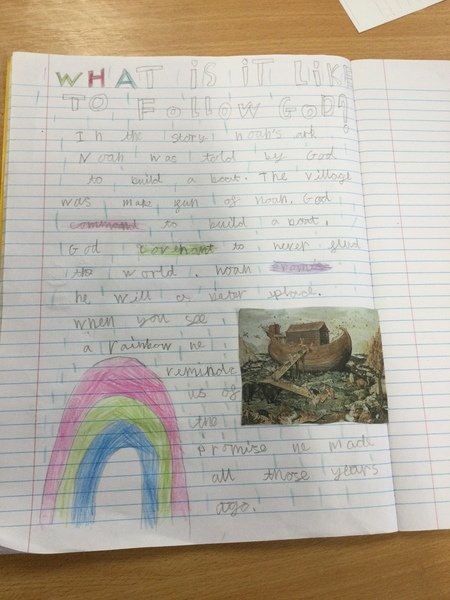 WHAT iS iT LiKE
TO FOLLOW GOD?
In the story noah's ark
Noah was told by God
to build a boat. The village
was make fun of noah. God
command to build a boat.
God covenant to never flud
the world. noah promis
he will
when you see
a rainbow he
reminds
us of
the
promise he made
all those years
ago.